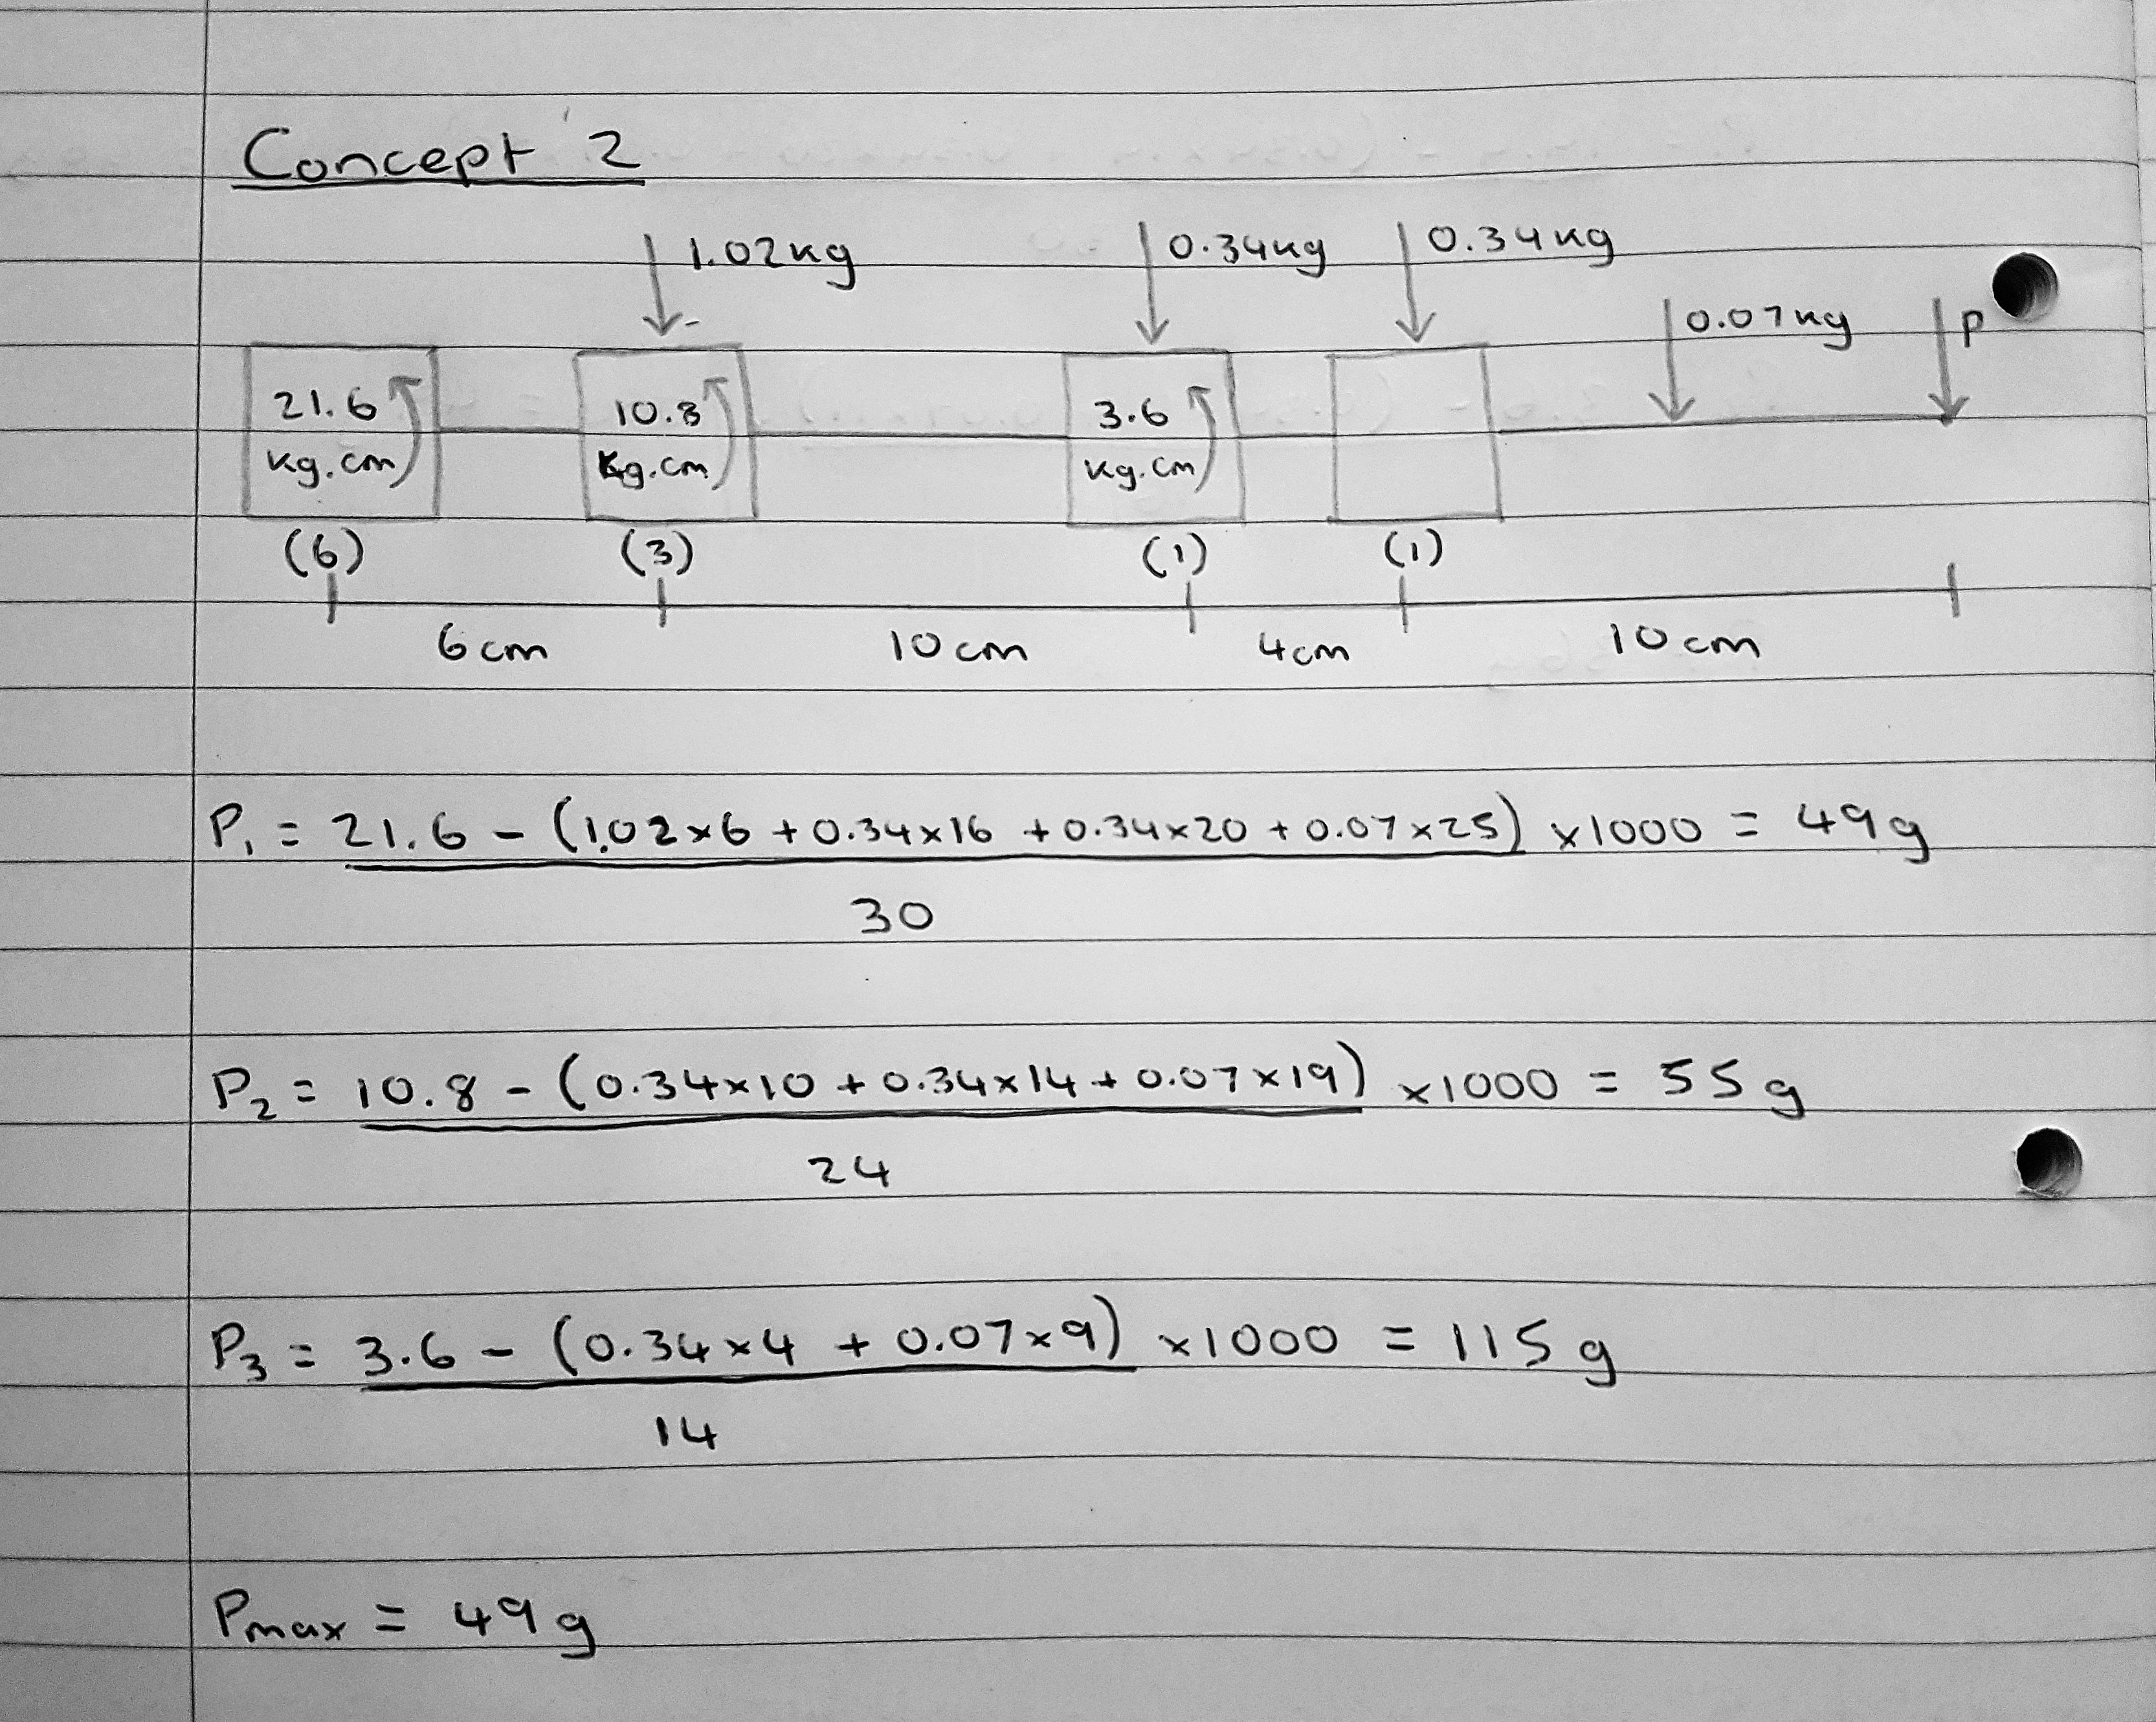 Concept 2
1.02kg 0.34kg 0.34kg
0.07kg P
21.6 10.8 3.6
kg.cm kg.cm kg.cm
(6) (3) (1) (1)
6cm 10cm 4cm 10cm
P₁ = 21.6 - (1.02×6 + 0.34×16 + 0.34×20 + 0.07×25) ×1000 = 49g
30
P₂ = 10.8 - (0.34×10 + 0.34×14 + 0.07×19) ×1000 = 55g
24
P₃ = 3.6 - (0.34×4 + 0.07×9) ×1000 = 115g
14
Pmax = 49g